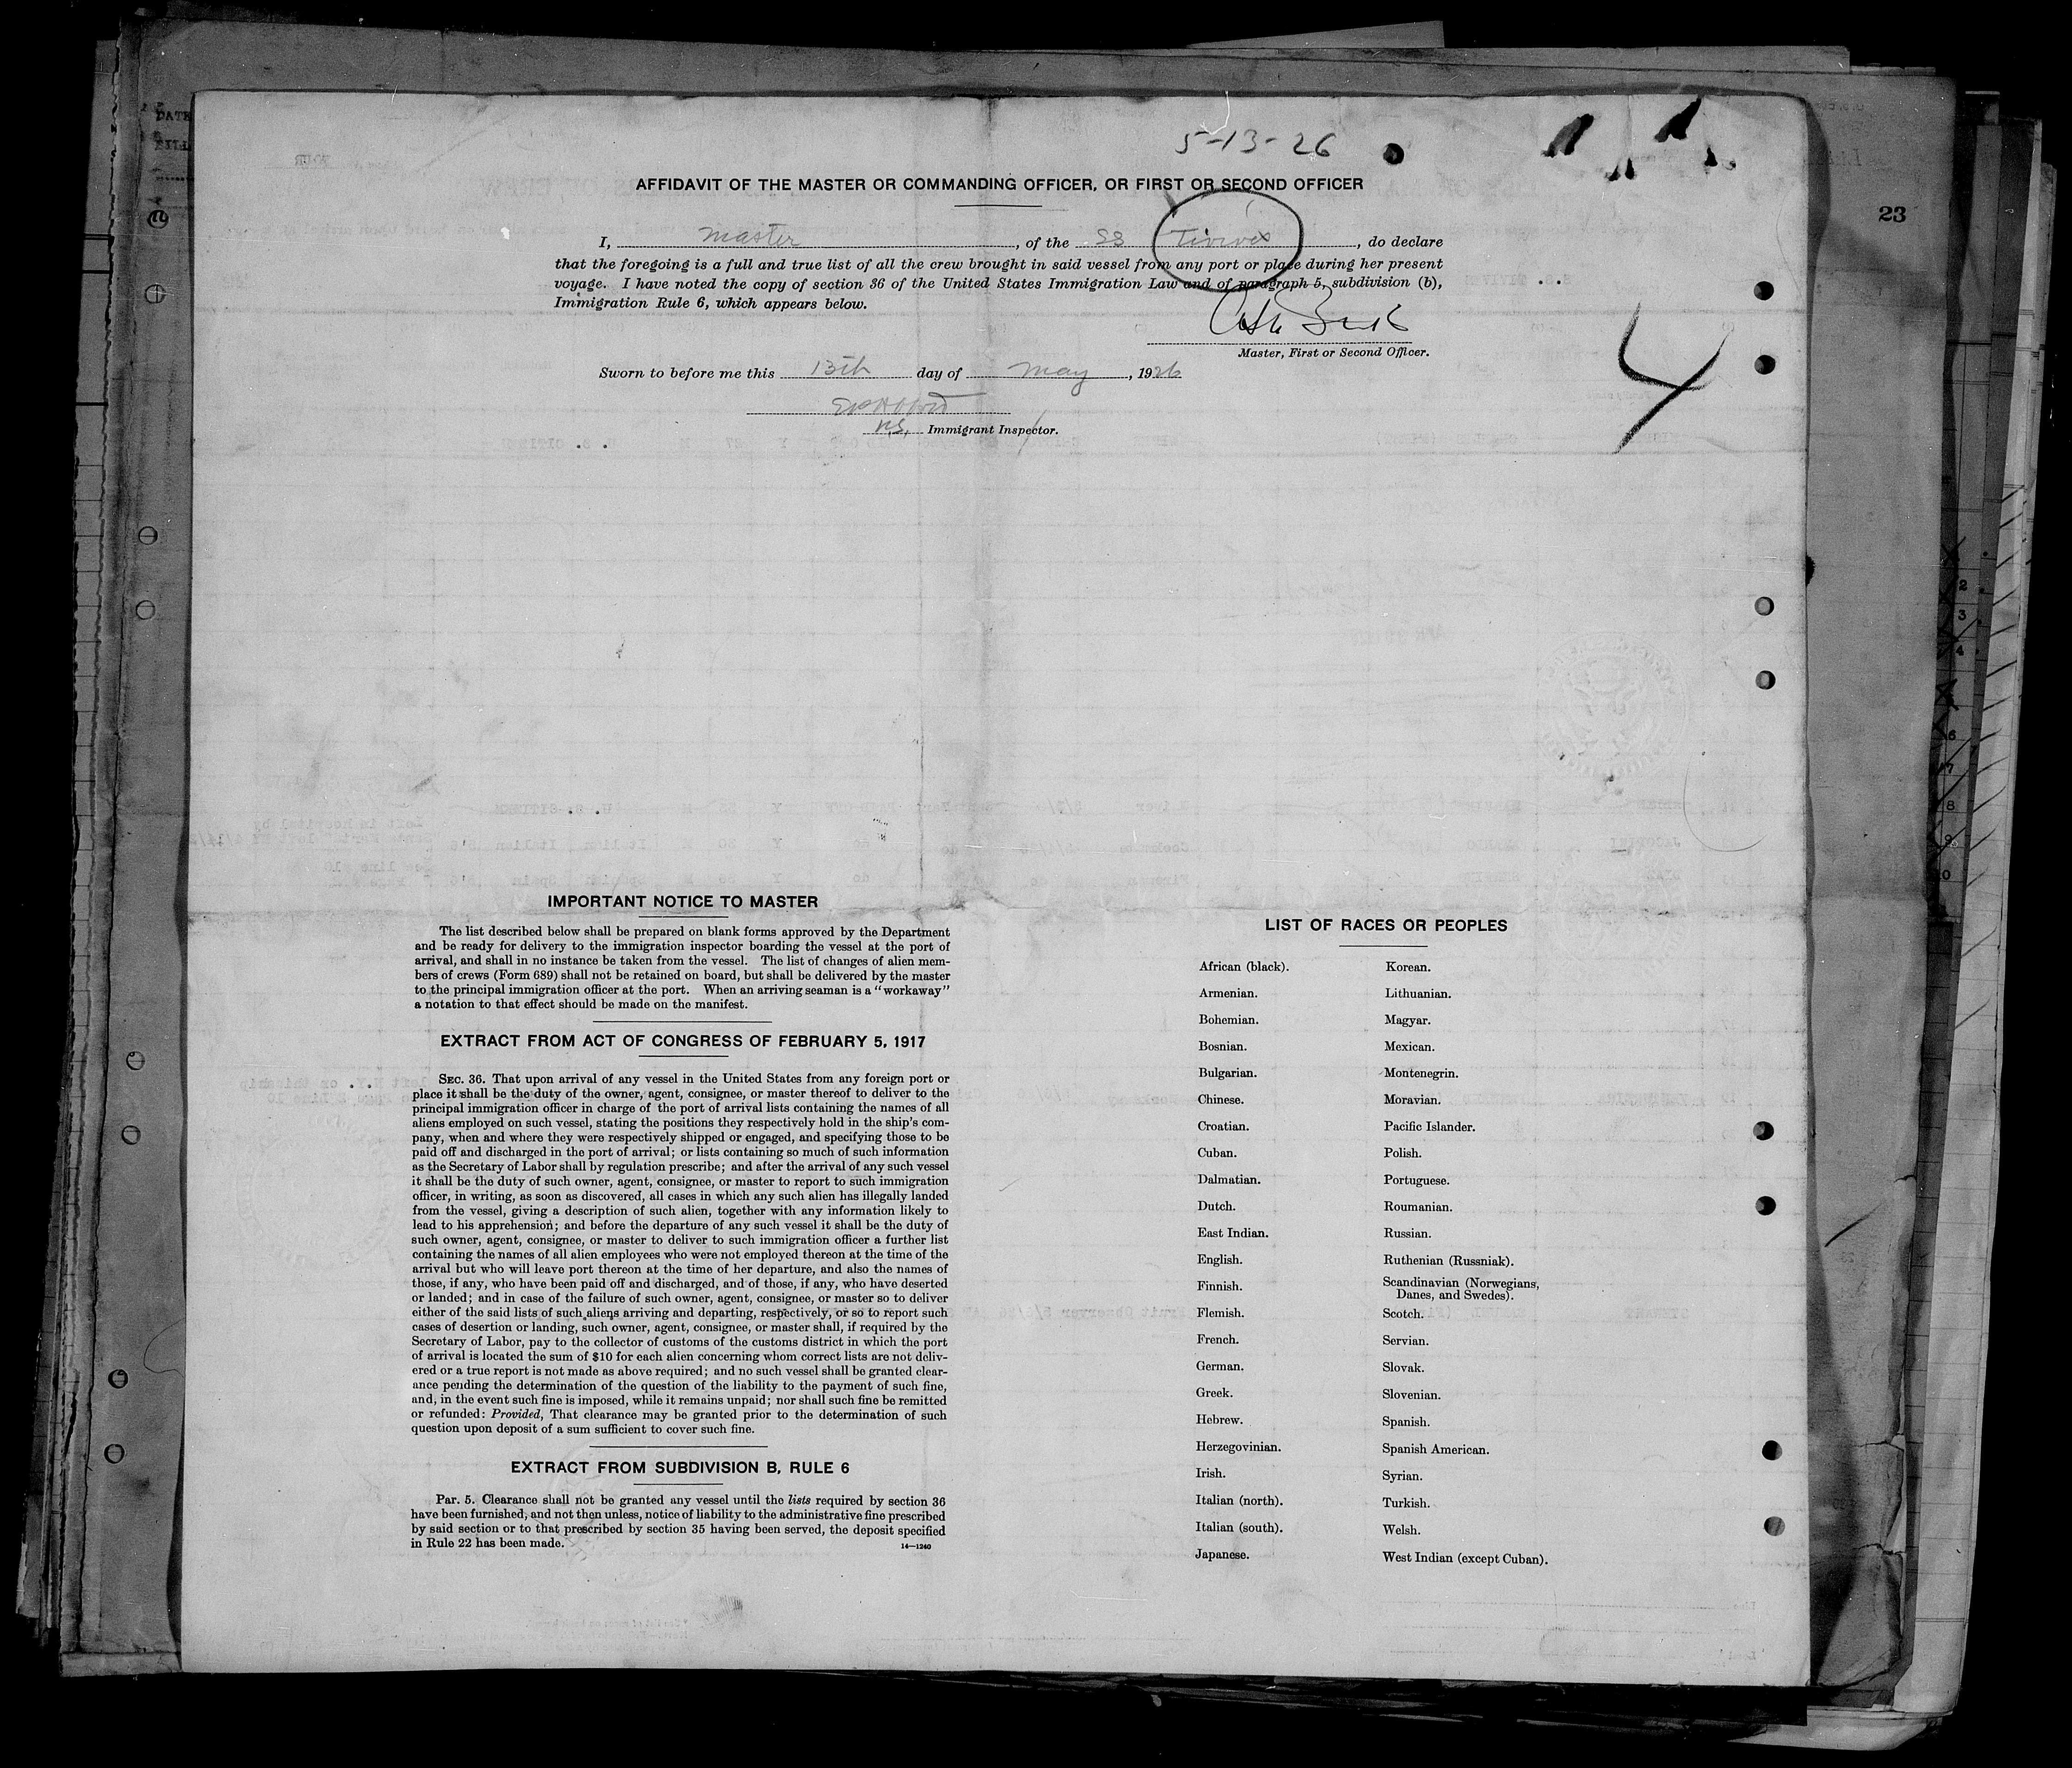 5-13-26
AFFIDAVIT OF THE MASTER OR COMMANDING OFFICER, OR FIRST OR SECOND OFFICER
23
I, Master, of the SS Tivives, do declare
that the foregoing is a full and true list of all the crew brought in said vessel from any port or place during her present
voyage. I have noted the copy of section 36 of the United States Immigration Law and of paragraph 5, subdivision (b),
Immigration Rule 6, which appears below.
Master, First or Second Officer.
4
Sworn to before me this 13th day of May, 1926
Immigrant Inspector.
IMPORTANT NOTICE TO MASTER
The list described below shall be prepared on blank forms approved by the Department
and be ready for delivery to the immigration inspector boarding the vessel at the port of
arrival, and shall in no instance be taken from the vessel. The list of changes of alien mem-
bers of crews (Form 689) shall not be retained on board, but shall be delivered by the master
to the principal immigration officer at the port. When an arriving seaman is a "workaway"
a notation to that effect should be made on the manifest.
EXTRACT FROM ACT OF CONGRESS OF FEBRUARY 5, 1917
SEC. 36. That upon arrival of any vessel in the United States from any foreign port or
place it shall be the duty of the owner, agent, consignee, or master thereof to deliver to the
principal immigration officer in charge of the port of arrival lists containing the names of all
aliens employed on such vessel, stating the positions they respectively hold in the ship's com-
pany, when and where they were respectively shipped or engaged, and specifying those to be
paid off and discharged in the port of arrival; or lists containing so much of such information
as the Secretary of Labor shall by regulation prescribe; and after the arrival of any such vessel
it shall be the duty of such owner, agent, consignee, or master to report to such immigration
officer, in writing, as soon as discovered, all cases in which any such alien has illegally landed
from the vessel, giving a description of such alien, together with any information likely to
lead to his apprehension; and before the departure of any such vessel it shall be the duty of
such owner, agent, consignee, or master to deliver to such immigration officer a further list
containing the names of all alien employees who were not employed thereon at the time of the
arrival but who will leave port thereon at the time of her departure, and also the names of
those, if any, who have been paid off and discharged, and of those, if any, who have deserted
or landed; and in case of the failure of such owner, agent, consignee, or master so to deliver
either of the said lists of such aliens arriving and departing, respectively, or so to report such
cases of desertion or landing, such owner, agent, consignee, or master shall, if required by the
Secretary of Labor, pay to the collector of customs of the customs district in which the port
of arrival is located the sum of $10 for each alien concerning whom correct lists are not deliv-
ered or a true report is not made as above required; and no such vessel shall be granted clear-
ance pending the determination of the question of the liability to the payment of such fine,
and, in the event such fine is imposed, while it remains unpaid; nor shall such fine be remitted
or refunded: Provided, That clearance may be granted prior to the determination of such
question upon deposit of a sum sufficient to cover such fine.
EXTRACT FROM SUBDIVISION B, RULE 6
Par. 5. Clearance shall not be granted any vessel until the lists required by section 36
have been furnished, and not then unless, notice of liability to the administrative fine prescribed
by said section or to that prescribed by section 35 having been served, the deposit specified
in Rule 22 has been made.
14—1240
LIST OF RACES OR PEOPLES
African (black).
Armenian.
Bohemian.
Bosnian.
Bulgarian.
Chinese.
Croatian.
Cuban.
Dalmatian.
Dutch.
East Indian.
English.
Finnish.
Flemish.
French.
German.
Greek.
Hebrew.
Herzegovinian.
Irish.
Italian (north).
Italian (south).
Japanese.
Korean.
Lithuanian.
Magyar.
Mexican.
Montenegrin.
Moravian.
Pacific Islander.
Polish.
Portuguese.
Roumanian.
Russian.
Ruthenian (Russniak).
Scandinavian (Norwegians,
Danes, and Swedes).
Scotch.
Servian.
Slovak.
Slovenian.
Spanish.
Spanish American.
Syrian.
Turkish.
Welsh.
West Indian (except Cuban).